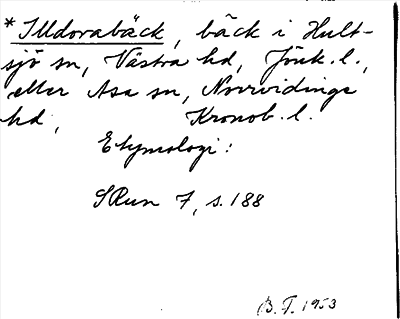 * Illdorabäck, bäck i Hult-
sjö sn, Västra hd, Jönk. l.,
eller Asa sn, Norrvidinge
hd, Kronob. l.
Etymologi:
SRun 7, s. 188
B. T. 1953